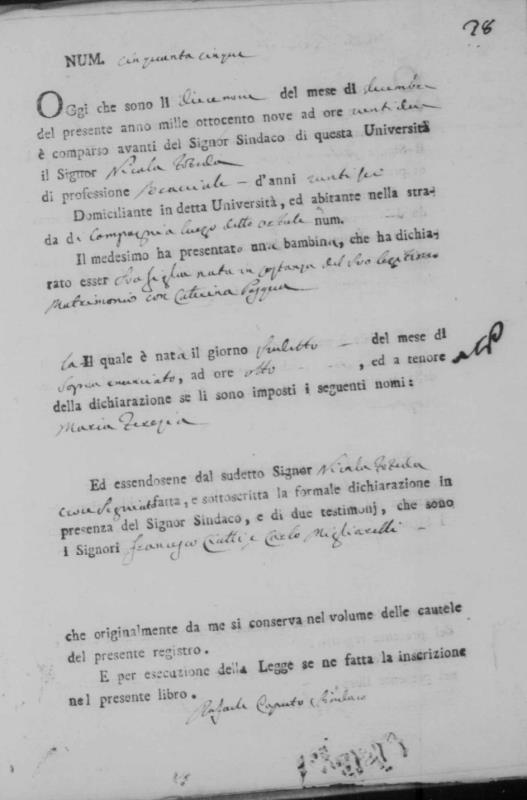 28
NUM. cinquanta cinque
OGgi che sono li diecenove del mese di decembre
del presente anno mille ottocento nove ad ore venti due
è comparso avanti del Signor Sindaco di questa Università
il Signor Nicola
di professione Bracciale - d'anni venti sei
Domiciliante in detta Università, ed abitante nella stra-
da di Compagnia luogo detto num.
Il medesimo ha presentato una bambina, che ha dichia-
rato esser sua figlia nata in costanza del suo legittimo
Matrimonio con Caterina Pasqua
La Il quale è nata il giorno sudetto - del mese di
sopra enunciato, ad ore otto - , ed a tenore
della dichiarazione se li sono imposti i seguenti nomi:
Maria Teresia
Ed essendosene dal sudetto Signor Nicola
croce Segnato fatta, e sottoscritta la formale dichiarazione in
presenza del Signor Sindaco, e di due testimonj, che sono
i Signori Francesco Ciutti e Carlo Migliarelli -
che originalmente da me si conserva nel volume delle cautele
del presente registro.
E per esecuzione della Legge se ne fatta la inscrizione
nel presente libro.
Rafaele Caputo Sindaco